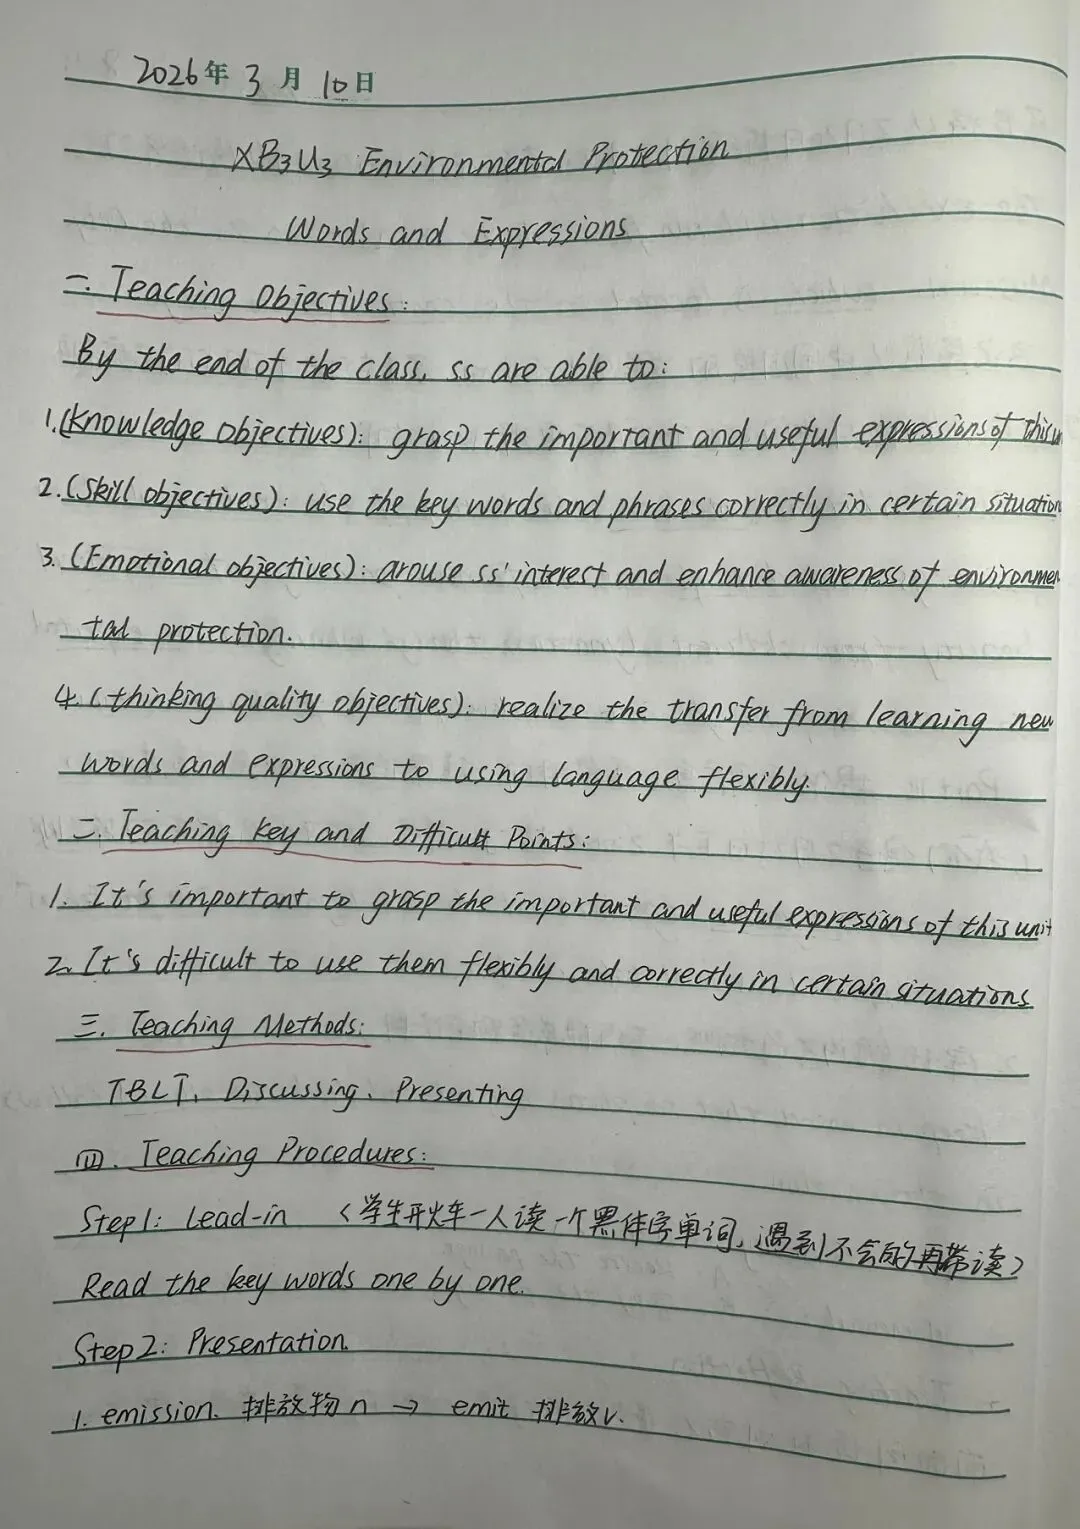 2026年 3 月 10日
XB3U3 Environmental Protection
Words and Expressions
一. Teaching Objectives:
By the end of the class, ss are able to:
1.(Knowledge objectives): grasp the important and useful expressions of this u
2.(Skill objectives): use the key words and phrases correctly in certain situation
3.(Emotional objectives): arouse ss' interest and enhance awareness of environmen
tal protection.
4.(thinking quality objectives): realize the transfer from learning new
words and expressions to using language flexibly.
二. Teaching key and Difficult Points:
1. It's important to grasp the important and useful expressions of this unit
2. It's difficult to use them flexibly and correctly in certain situations.
三. Teaching Methods:
TBLT, Discussing, Presenting
四. Teaching Procedures:
Step1: Lead-in (学生开火车一人读一个黑体字单词,遇到不会的再带读)
Read the key words one by one.
Step2: Presentation
1. emission. 排放物n → emit 排放v.